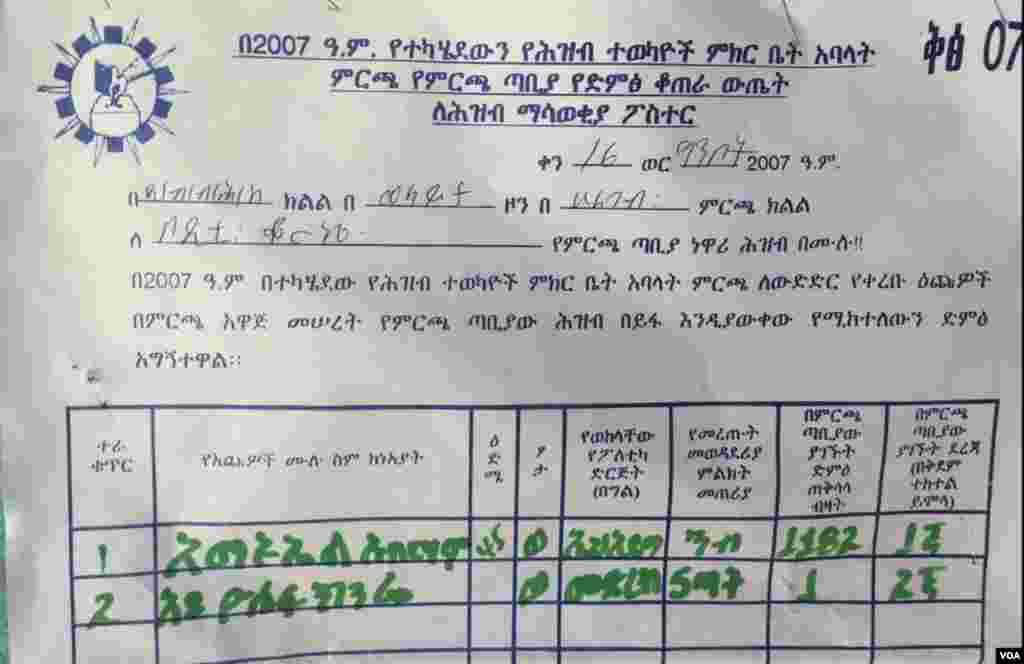 ቅፅ 07
በ2007 ዓ.ም. የተካሄደውን የሕዝብ ተወካዮች ምክር ቤት አባላት
ምርጫ የምርጫ ጣቢያ የድምፅ ቆጠራ ውጤት
ለሕዝብ ማሳወቂያ ፖስተር
ቀን 16 ወር ግንቦት 2007 ዓ.ም.
በ ክልል በ ወላይታ ዞን በ ምርጫ ክልል
ለ የምርጫ ጣቢያ ነዋሪ ሕዝብ በሙሉ!!
በ2007 ዓ.ም በተካሄደው የሕዝብ ተወካዮች ምክር ቤት አባላት ምርጫ ለውድድር የቀረቡ ዕጩዎች
በምርጫ አዋጅ መሠረት የምርጫ ጣቢያው ሕዝብ በይፋ እንዲያውቀው የሚከተለውን ድምፅ
አግኝተዋል፡፡
ተራ ቁጥር
የእጩዎች ሙሉ ስም ከነአያት
ዕድሜ
ፆታ
የወከላቸው የፖለቲካ ድርጅት (በግል)
የመረጡት መወዳደሪያ ምልክት መጠሪያ
በምርጫ ጣቢያው ያገኙት ድምፅ ጠቅላላ ብዛት
በምርጫ ጣቢያው ያገኙት ደረጃ (በቅደም ተከተል ይሞላ)
1 ወ ኢህአዴግ ንብ 1182 1ኛ
2 ወ መድረክ 5 ጣት 1 2ኛ
VOA